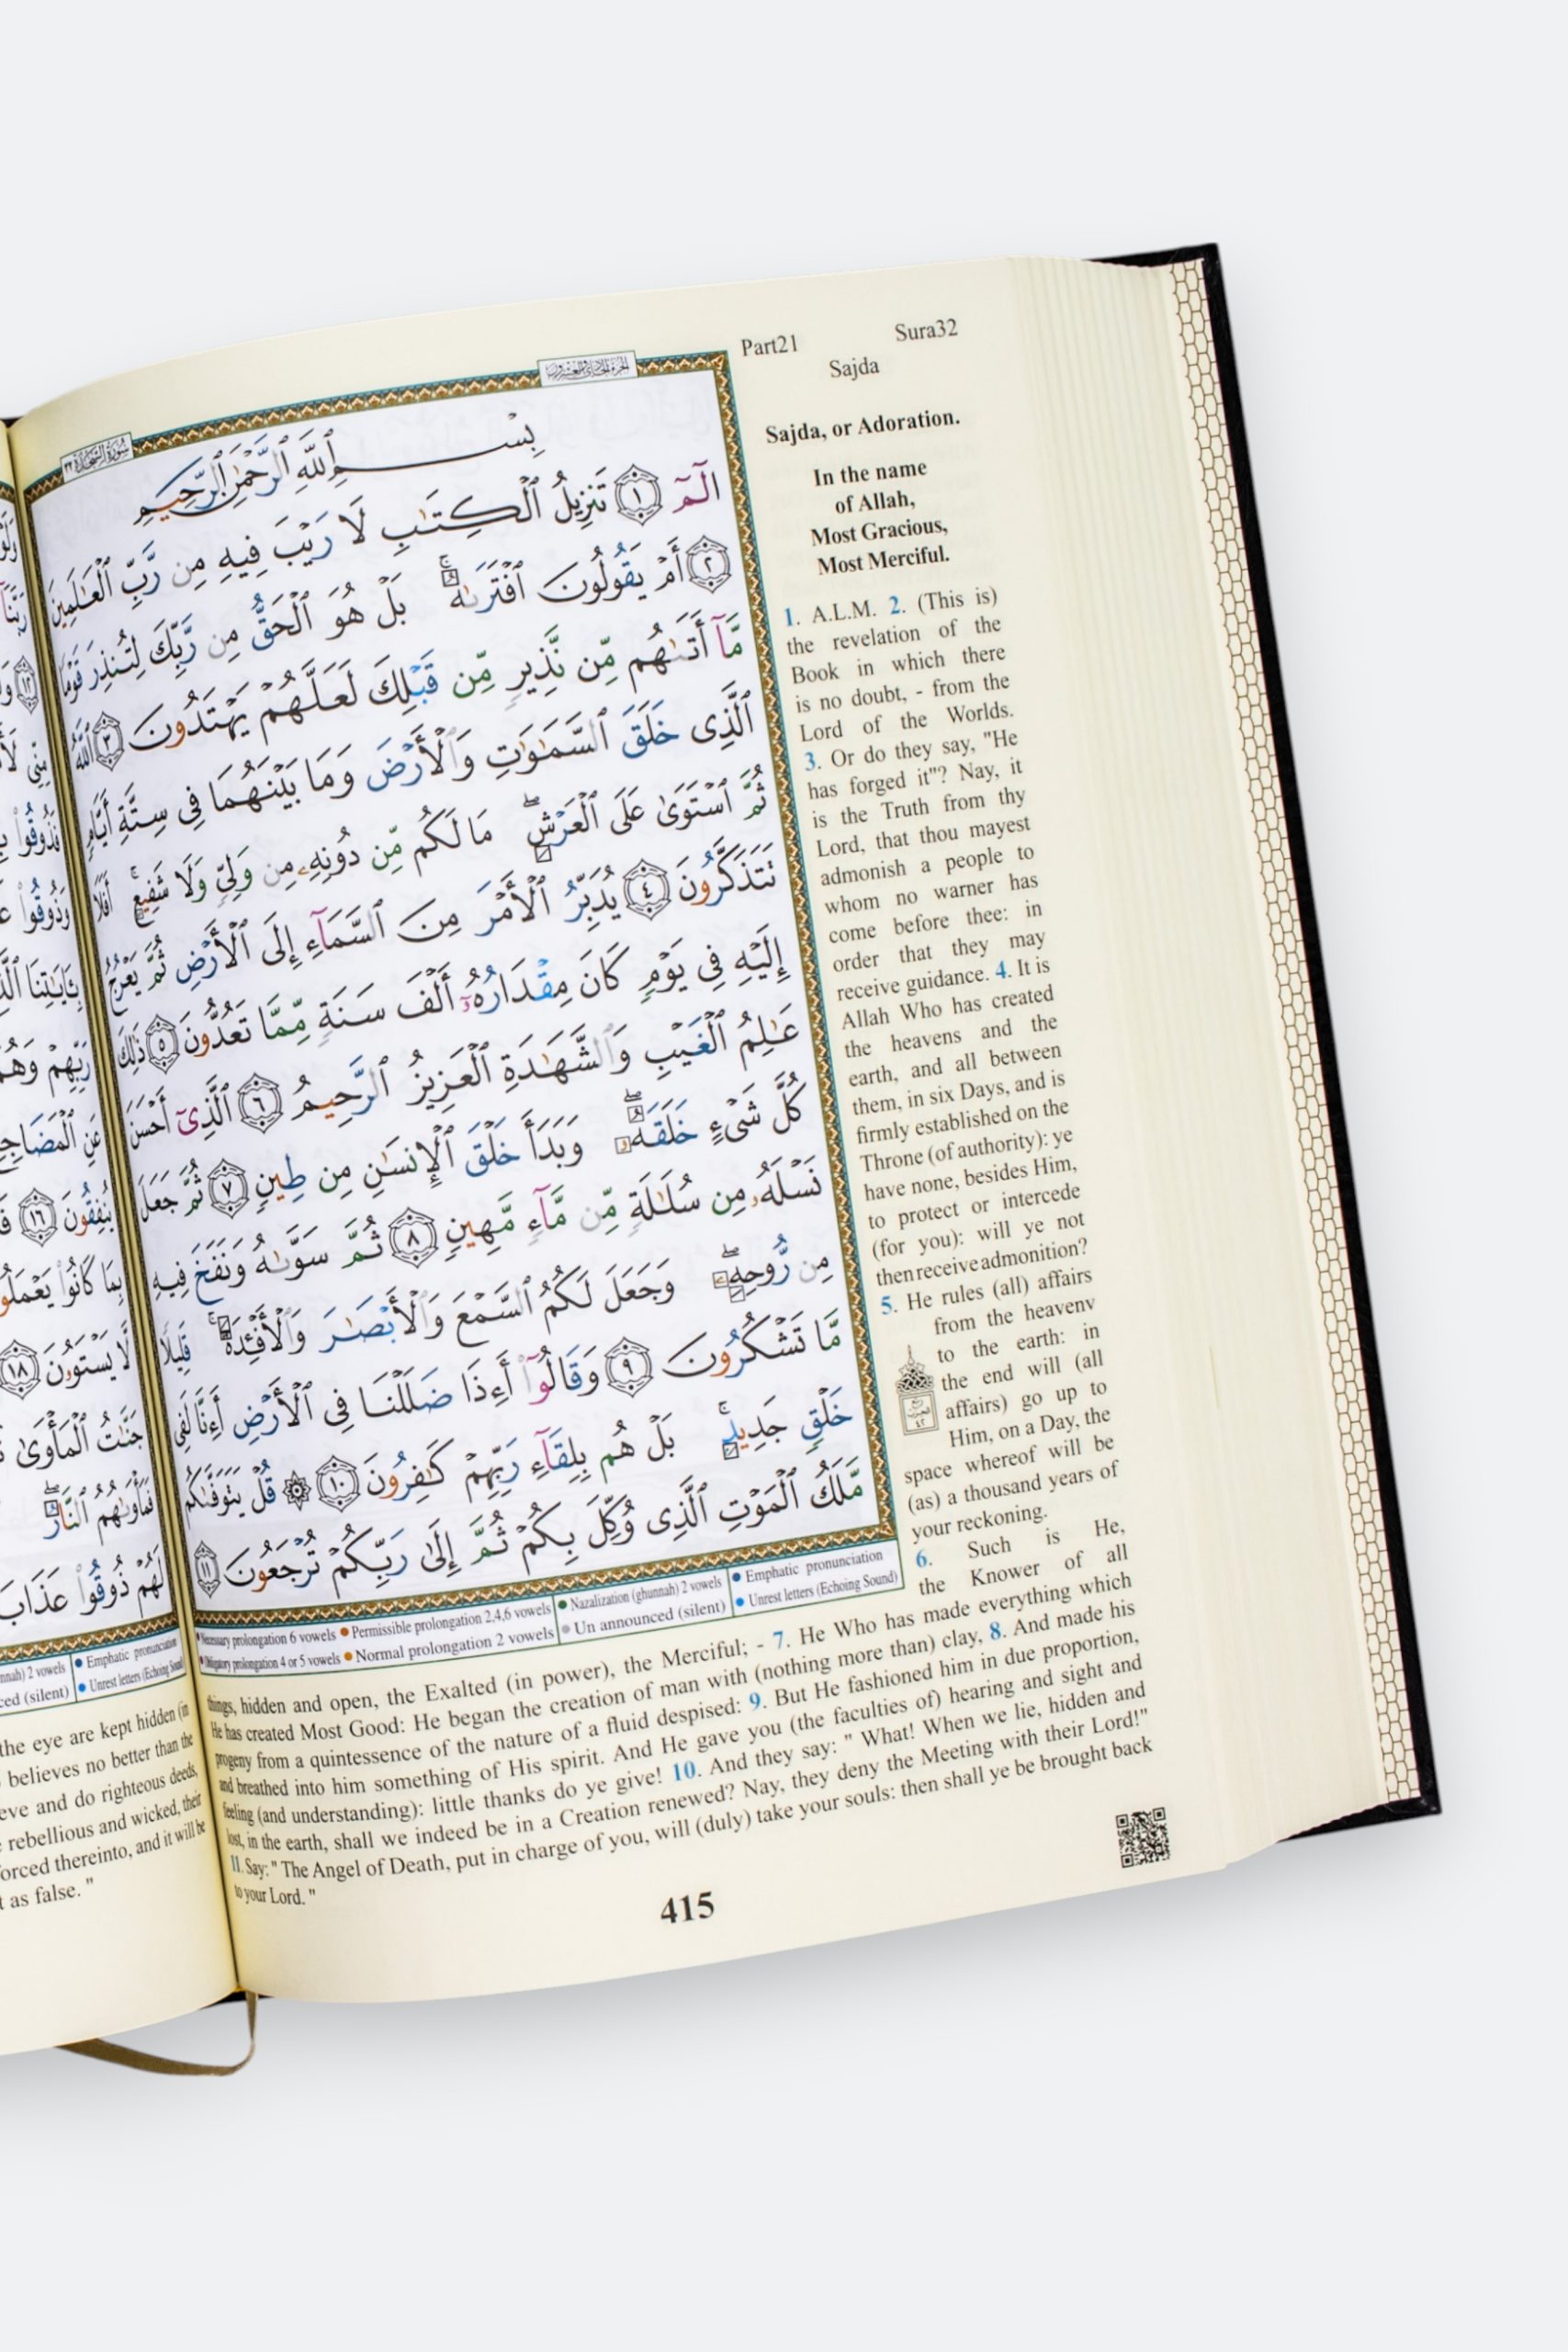 Part21 Sura32
Sajda
Sajda, or Adoration.
In the name
of Allah,
Most Gracious,
Most Merciful.
سورة السجدة ٣٢
الجزء الحادي والعشرون
بِسْمِ ٱللَّهِ ٱلرَّحْمَٰنِ ٱلرَّحِيمِ
الٓمٓ ١ تَنزِيلُ ٱلْكِتَٰبِ لَا رَيْبَ فِيهِ مِن رَّبِّ ٱلْعَٰلَمِينَ
٢ أَمْ يَقُولُونَ ٱفْتَرَىٰهُ ۚ بَلْ هُوَ ٱلْحَقُّ مِن رَّبِّكَ لِتُنذِرَ قَوْمًا
مَّآ أَتَىٰهُم مِّن نَّذِيرٍ مِّن قَبْلِكَ لَعَلَّهُمْ يَهْتَدُونَ ٣ ٱللَّهُ
ٱلَّذِى خَلَقَ ٱلسَّمَٰوَٰتِ وَٱلْأَرْضَ وَمَا بَيْنَهُمَا فِى سِتَّةِ أَيَّامٍ
ثُمَّ ٱسْتَوَىٰ عَلَى ٱلْعَرْشِ ۖ مَا لَكُم مِّن دُونِهِۦ مِن وَلِىٍّ وَلَا شَفِيعٍ ۚ أَفَلَا
تَتَذَكَّرُونَ ٤ يُدَبِّرُ ٱلْأَمْرَ مِنَ ٱلسَّمَآءِ إِلَى ٱلْأَرْضِ ثُمَّ يَعْرُجُ
إِلَيْهِ فِى يَوْمٍ كَانَ مِقْدَارُهُۥٓ أَلْفَ سَنَةٍ مِّمَّا تَعُدُّونَ ٥ ذَٰلِكَ
عَٰلِمُ ٱلْغَيْبِ وَٱلشَّهَٰدَةِ ٱلْعَزِيزُ ٱلرَّحِيمُ ٦ ٱلَّذِىٓ أَحْسَنَ
كُلَّ شَىْءٍ خَلَقَهُۥ ۖ وَبَدَأَ خَلْقَ ٱلْإِنسَٰنِ مِن طِينٍ ٧ ثُمَّ جَعَلَ
نَسْلَهُۥ مِن سُلَٰلَةٍ مِّن مَّآءٍ مَّهِينٍ ٨ ثُمَّ سَوَّىٰهُ وَنَفَخَ فِيهِ
مِن رُّوحِهِۦ ۖ وَجَعَلَ لَكُمُ ٱلسَّمْعَ وَٱلْأَبْصَٰرَ وَٱلْأَفْـِٔدَةَ ۚ قَلِيلًا
مَّا تَشْكُرُونَ ٩ وَقَالُوٓا۟ أَءِذَا ضَلَلْنَا فِى ٱلْأَرْضِ أَءِنَّا لَفِى
خَلْقٍ جَدِيدٍۭ ۚ بَلْ هُم بِلِقَآءِ رَبِّهِمْ كَٰفِرُونَ ١٠ ۞ قُلْ يَتَوَفَّىٰكُم
مَّلَكُ ٱلْمَوْتِ ٱلَّذِى وُكِّلَ بِكُمْ ثُمَّ إِلَىٰ رَبِّكُمْ تُرْجَعُونَ ١١
1. A.L.M. 2. (This is)
the revelation of the
Book in which there
is no doubt, - from the
Lord of the Worlds.
3. Or do they say, "He
has forged it"? Nay, it
is the Truth from thy
Lord, that thou mayest
admonish a people to
whom no warner has
come before thee: in
order that they may
receive guidance. 4. It is
Allah Who has created
the heavens and the
earth, and all between
them, in six Days, and is
firmly established on the
Throne (of authority): ye
have none, besides Him,
to protect or intercede
(for you): will ye not
then receive admonition?
5. He rules (all) affairs
from the heavenv
to the earth: in
the end will (all
affairs) go up to
Him, on a Day, the
space whereof will be
(as) a thousand years of
your reckoning.
6. Such is He,
the Knower of all
things, hidden and open, the Exalted (in power), the Merciful; - 7. He Who has made everything which
He has created Most Good: He began the creation of man with (nothing more than) clay, 8. And made his
progeny from a quintessence of the nature of a fluid despised: 9. But He fashioned him in due proportion,
and breathed into him something of His spirit. And He gave you (the faculties of) hearing and sight and
feeling (and understanding): little thanks do ye give! 10. And they say: " What! When we lie, hidden and
lost, in the earth, shall we indeed be in a Creation renewed? Nay, they deny the Meeting with their Lord!"
11. Say: " The Angel of Death, put in charge of you, will (duly) take your souls: then shall ye be brought back
to your Lord. "
Necessary prolongation 6 vowels Permissible prolongation 2,4,6 vowels Nazalization (ghunnah) 2 vowels Emphatic pronunciation
Obligatory prolongation 4 or 5 vowels Normal prolongation 2 vowels Un announced (silent) Unrest letters (Echoing Sound)
415
2 vowels Emphatic pronunciation
(silent) Unrest letters (Echoing Sound)
the eye are kept hidden (in
believes no better than the
and do righteous deeds,
rebellious and wicked, their
forced thereinto, and it will be
as false. "